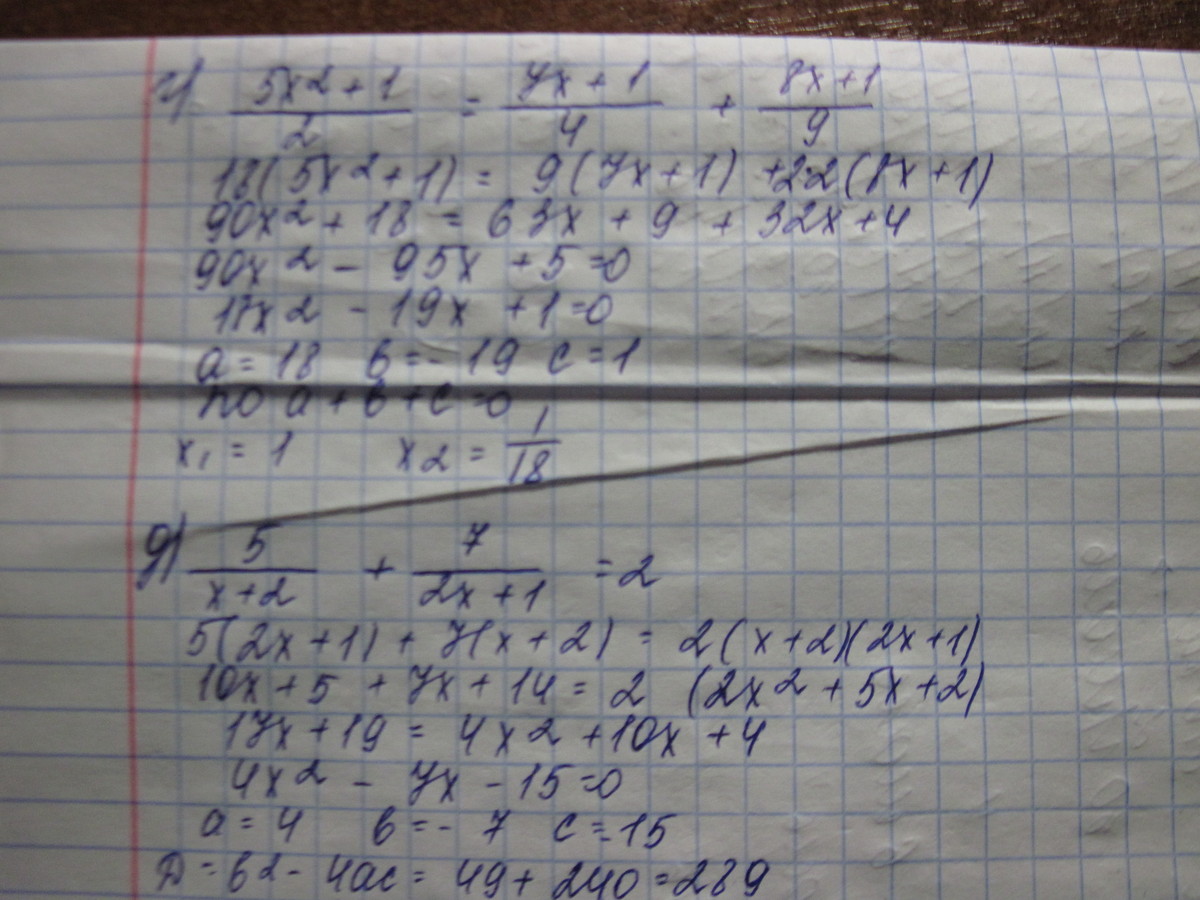 г) 5x2+1/2 = 7x+1/4 + 8x+1/9
18(5x2+1) = 9(7x+1) +2·2(8x+1)
90x2+18 = 63x + 9 + 32x+4
90x2 - 95x +5=0
17x2 - 19x +1=0
a=18 в=-19 c=1
по a+в+c=0
x1=1 x2=1/18
д) 5/x+2 + 7/2x+1 =2
5(2x+1) + 7(x+2) = 2(x+2)(2x+1)
10x+5 + 7x+14 = 2 (2x2 + 5x+2)
17x+19 = 4x2 +10x +4
4x2 - 7x -15=0
a=4 в=-7 c=-15
Д=в2-4ac=49+240=289